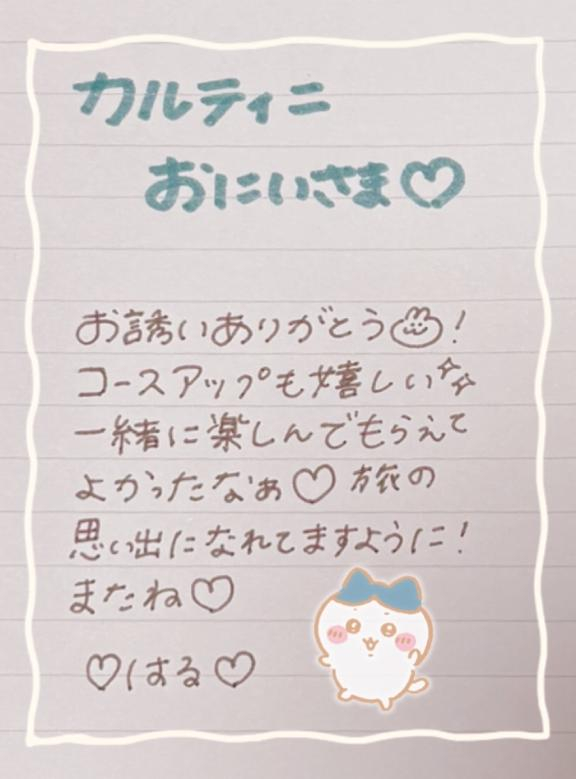 カルティニ
おにいさま♡
お誘いありがとう!
コースアップも嬉しい✨
一緒に楽しんでもらえて
よかったなぁ♡ 旅の
思い出になれてますように!
またね♡
♡はる♡